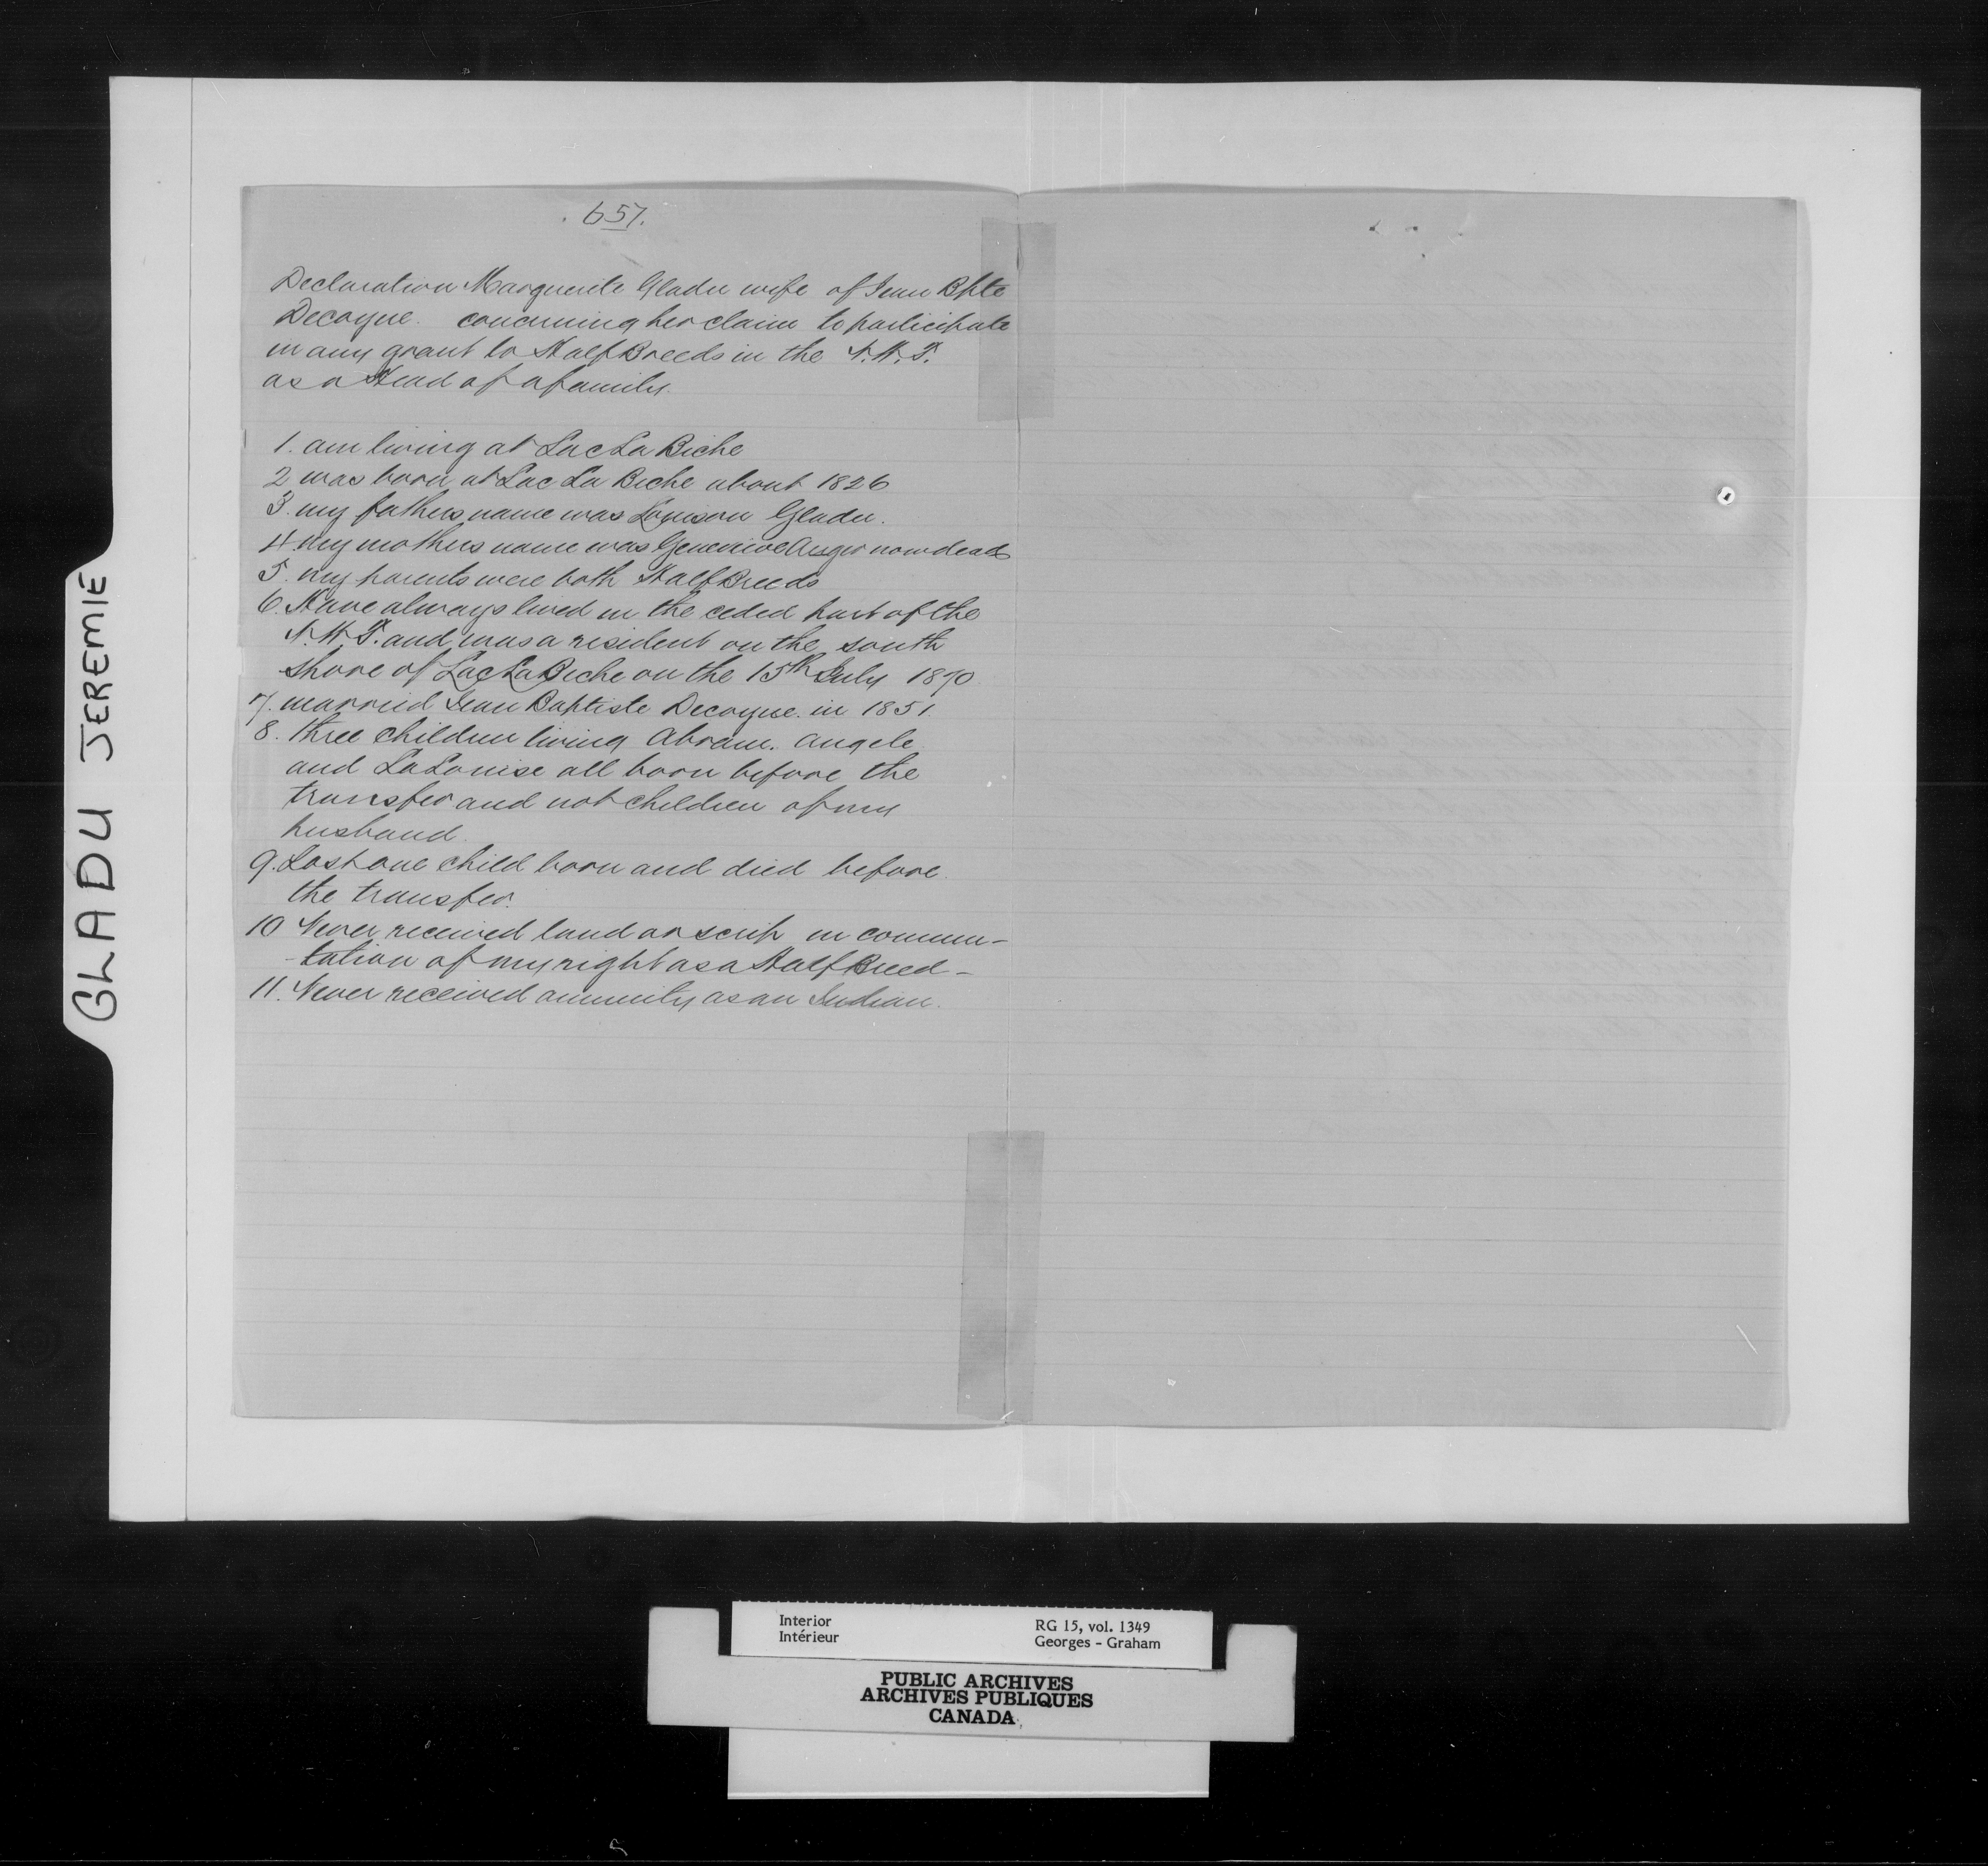 657.
Declaration Marguerite Gladu wife of Jean Bpte
Decoyne. concerning her claim to participate
in any grant to Half Breeds in the N.W.T.
as a Head of a family.
1. am living at Lac La Biche
2 was born at Lac La Biche about 1826
3. my fathers name was Louison Gladu.
4. my mothers name was Genevieve Auger now dead
5. my parents were both Half Breeds
6. Have always lived in the ceded part of the
N.W.T. and was a resident on the south
shore of Lac La Biche on the 15th July 1870
7. married Jean Baptiste Decoyne. in 1851.
8. three children living Abram. Angele
and La Louise all born before the
transfer and not children of my
husband.
9. Lost one child born and died before
the transfer.
10 Never received land or scrip in commu-
-tation of my right as a Half Breed -
11. Never received annuity as an Indian.
GLADU JEREMIE
Interior
Intérieur
RG 15, vol. 1349
Georges - Graham
PUBLIC ARCHIVES
ARCHIVES PUBLIQUES
CANADA